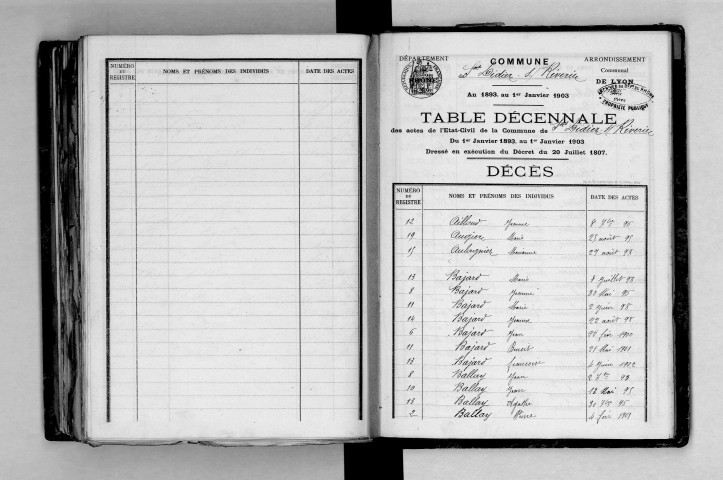 NUMÉRO DU REGISTRE NOMS ET PRÉNOMS DES INDIVIDUS DATE DES ACTES
DÉPARTEMENT COMMUNE ARRONDISSEMENT
RHONE St Didier s/ Riverie Communal
DE LYON
Au 1893, au 1er Janvier 1903
ARCHIVES DU DÉP. DU RHÔNE
PROPRIÉTÉ PUBLIQUE
TABLE DÉCENNALE
des actes de l'Etat-Civil de la Commune de St Didier s/ Riverie
Du 1er Janvier 1893, au 1er Janvier 1903
Dressé en exécution du Décret du 20 Juillet 1807.
DÉCÈS
NUMÉRO DU REGISTRE NOMS ET PRÉNOMS DES INDIVIDUS DATE DES ACTES
12 Ailloud Jeanne 8 7bre 95
19 Augier Marie 25 août 95
15 Aubrgnier Marianne 27 août 98
13 Bajard Marie Juillet 93
8 Bajard Jeanne 30 Mai 95
11 Bajard Marie 2 Juin 98
14 Bajard Jeanne 22 août 98
6 Bajard Jean 22 fév 1900
11 Bajard Benoit 21 Mai 1901
13 Bajard 4 Juin 1902
8 Ballay Jean 93
10 Ballay Jean 12 Mai 95
18 Ballay 95
2 Ballay Pierre 4 fév 1901